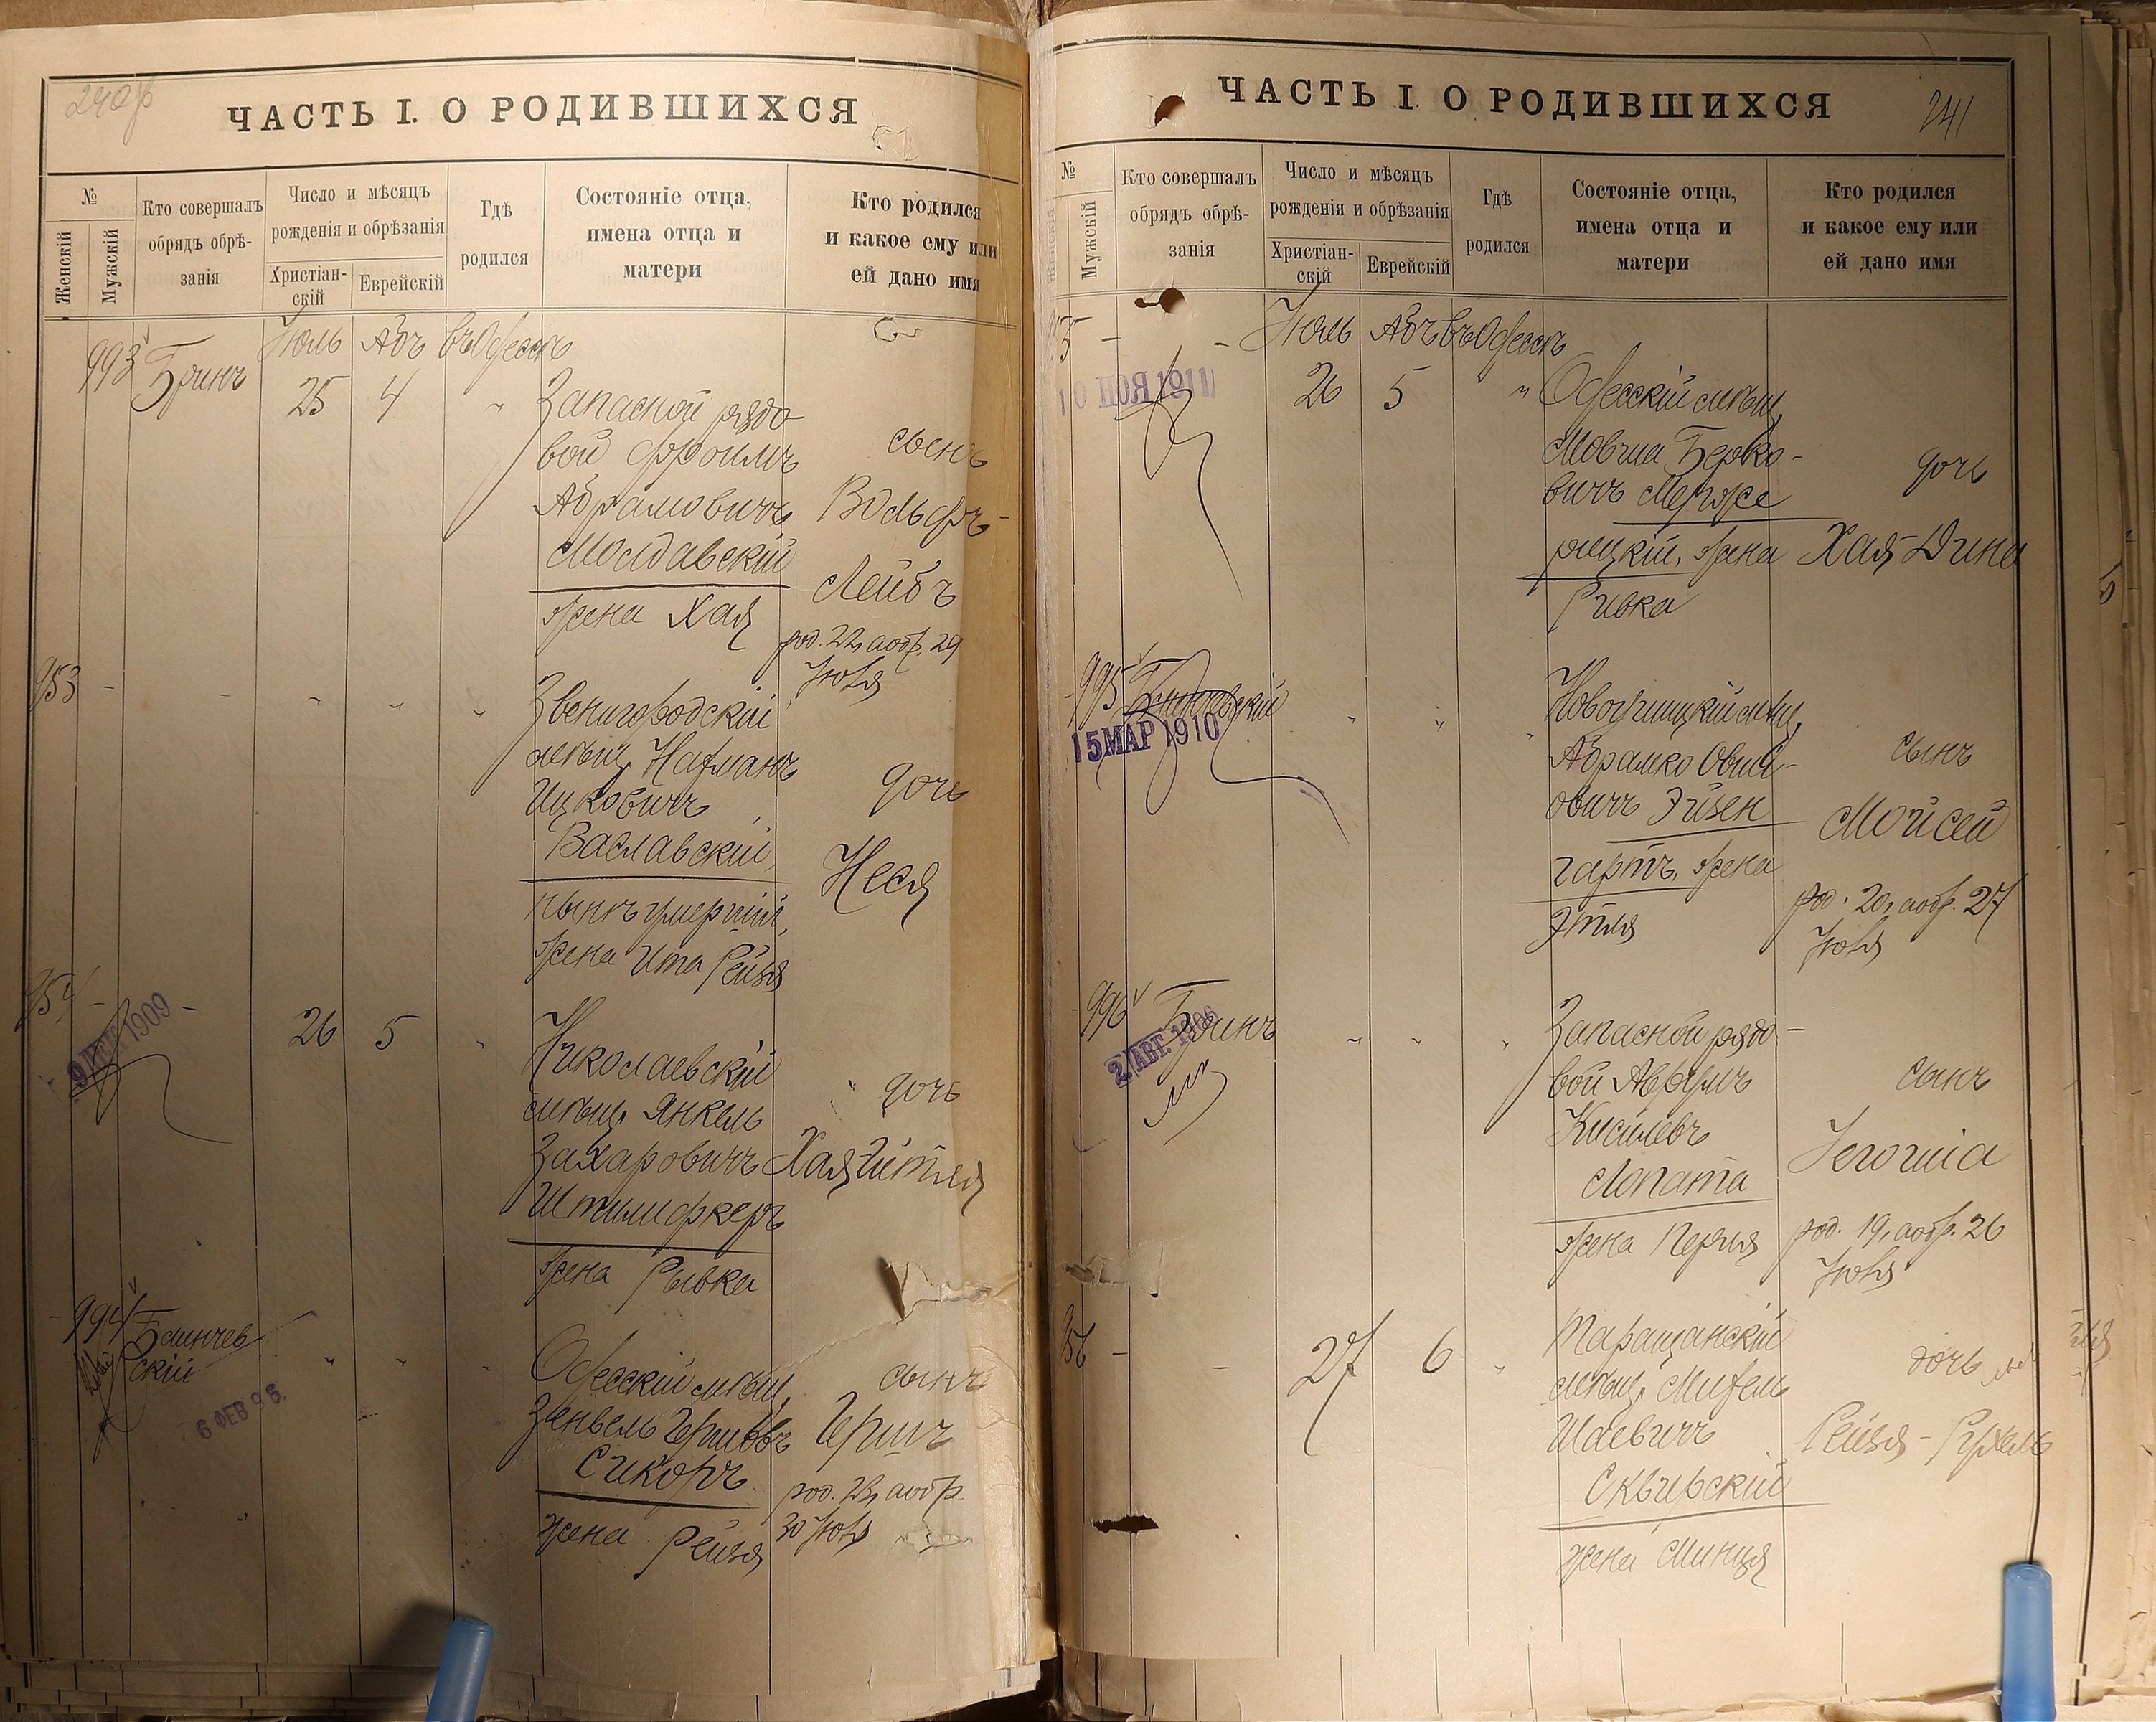 ЧАСТЬ I. О РОДИВШИХСЯ
№
Женскій
Мужскій
Кто совершалъ
обрядъ обрѣ-
занія
Число и мѣсяцъ
рожденія и обрѣзанія
Христіан-
скій
Еврейскій
Гдѣ
родился
Состояніе отца,
имена отца и
матери
Кто родился
и какое ему или
ей дано имя
993
Июль Абъ въ Одессѣ
25 4 "
Запасной рядо-
вой Фроимъ
Абрамовичъ
Молдавскій
жена Хая
сынъ
Вольфъ-
Лейбъ
род. 22, а обр. 29
Июля
953 - - " " "
Звенигородскій
мѣщ. Нахманъ
Ицковичъ
Ваславскій,
нынѣ умершій,
жена Ита Рейзя
дочь
Неся
954 - -
9 ДЕК 1909
26 5 "
Николаевскій
мѣщ. Янкель
Захаровичъ
жена Рывка
дочь
Хая Гитля
994
6 ФЕВ 96.
" " "
Одесскій мѣщ.
Зенвель Гершовъ
Сикоръ
жена Рейзя
сынъ
Гершъ
род. 23, а обр.
30 Июля
ЧАСТЬ I. О РОДИВШИХСЯ
241
№
Мужскій
Кто совершалъ
обрядъ обрѣ-
занія
Число и мѣсяцъ
рожденія и обрѣзанія
Христіан-
скій
Еврейскій
Гдѣ
родился
Состояніе отца,
имена отца и
матери
Кто родился
и какое ему или
ей дано имя
- -
10 НОЯ 1911
Июль Абъ въ Одессѣ
26 5 "
Одесскій мѣщ.
Мовша Берко-
вичъ Межже
рицкій, жена
Ривка
дочь
Хая-Дина
995
15 МАР 1910
" " "
Абрамко
овичъ Эйзен
гартъ, жена
Этля
сынъ
Мойсей
род. 20, а обр. 27
Июля
996
2 АВГ. 1906
" " "
Запасной рядо-
вой
Киселевъ
Лопата
жена Перля
сынъ
род. 19, а обр. 26
Июля
956 - -
27 6 "
Таращанскій
мѣщ. Михель
Шаевичъ
Сквирскій
жена Минця
дочь
Рейзя-Рухель